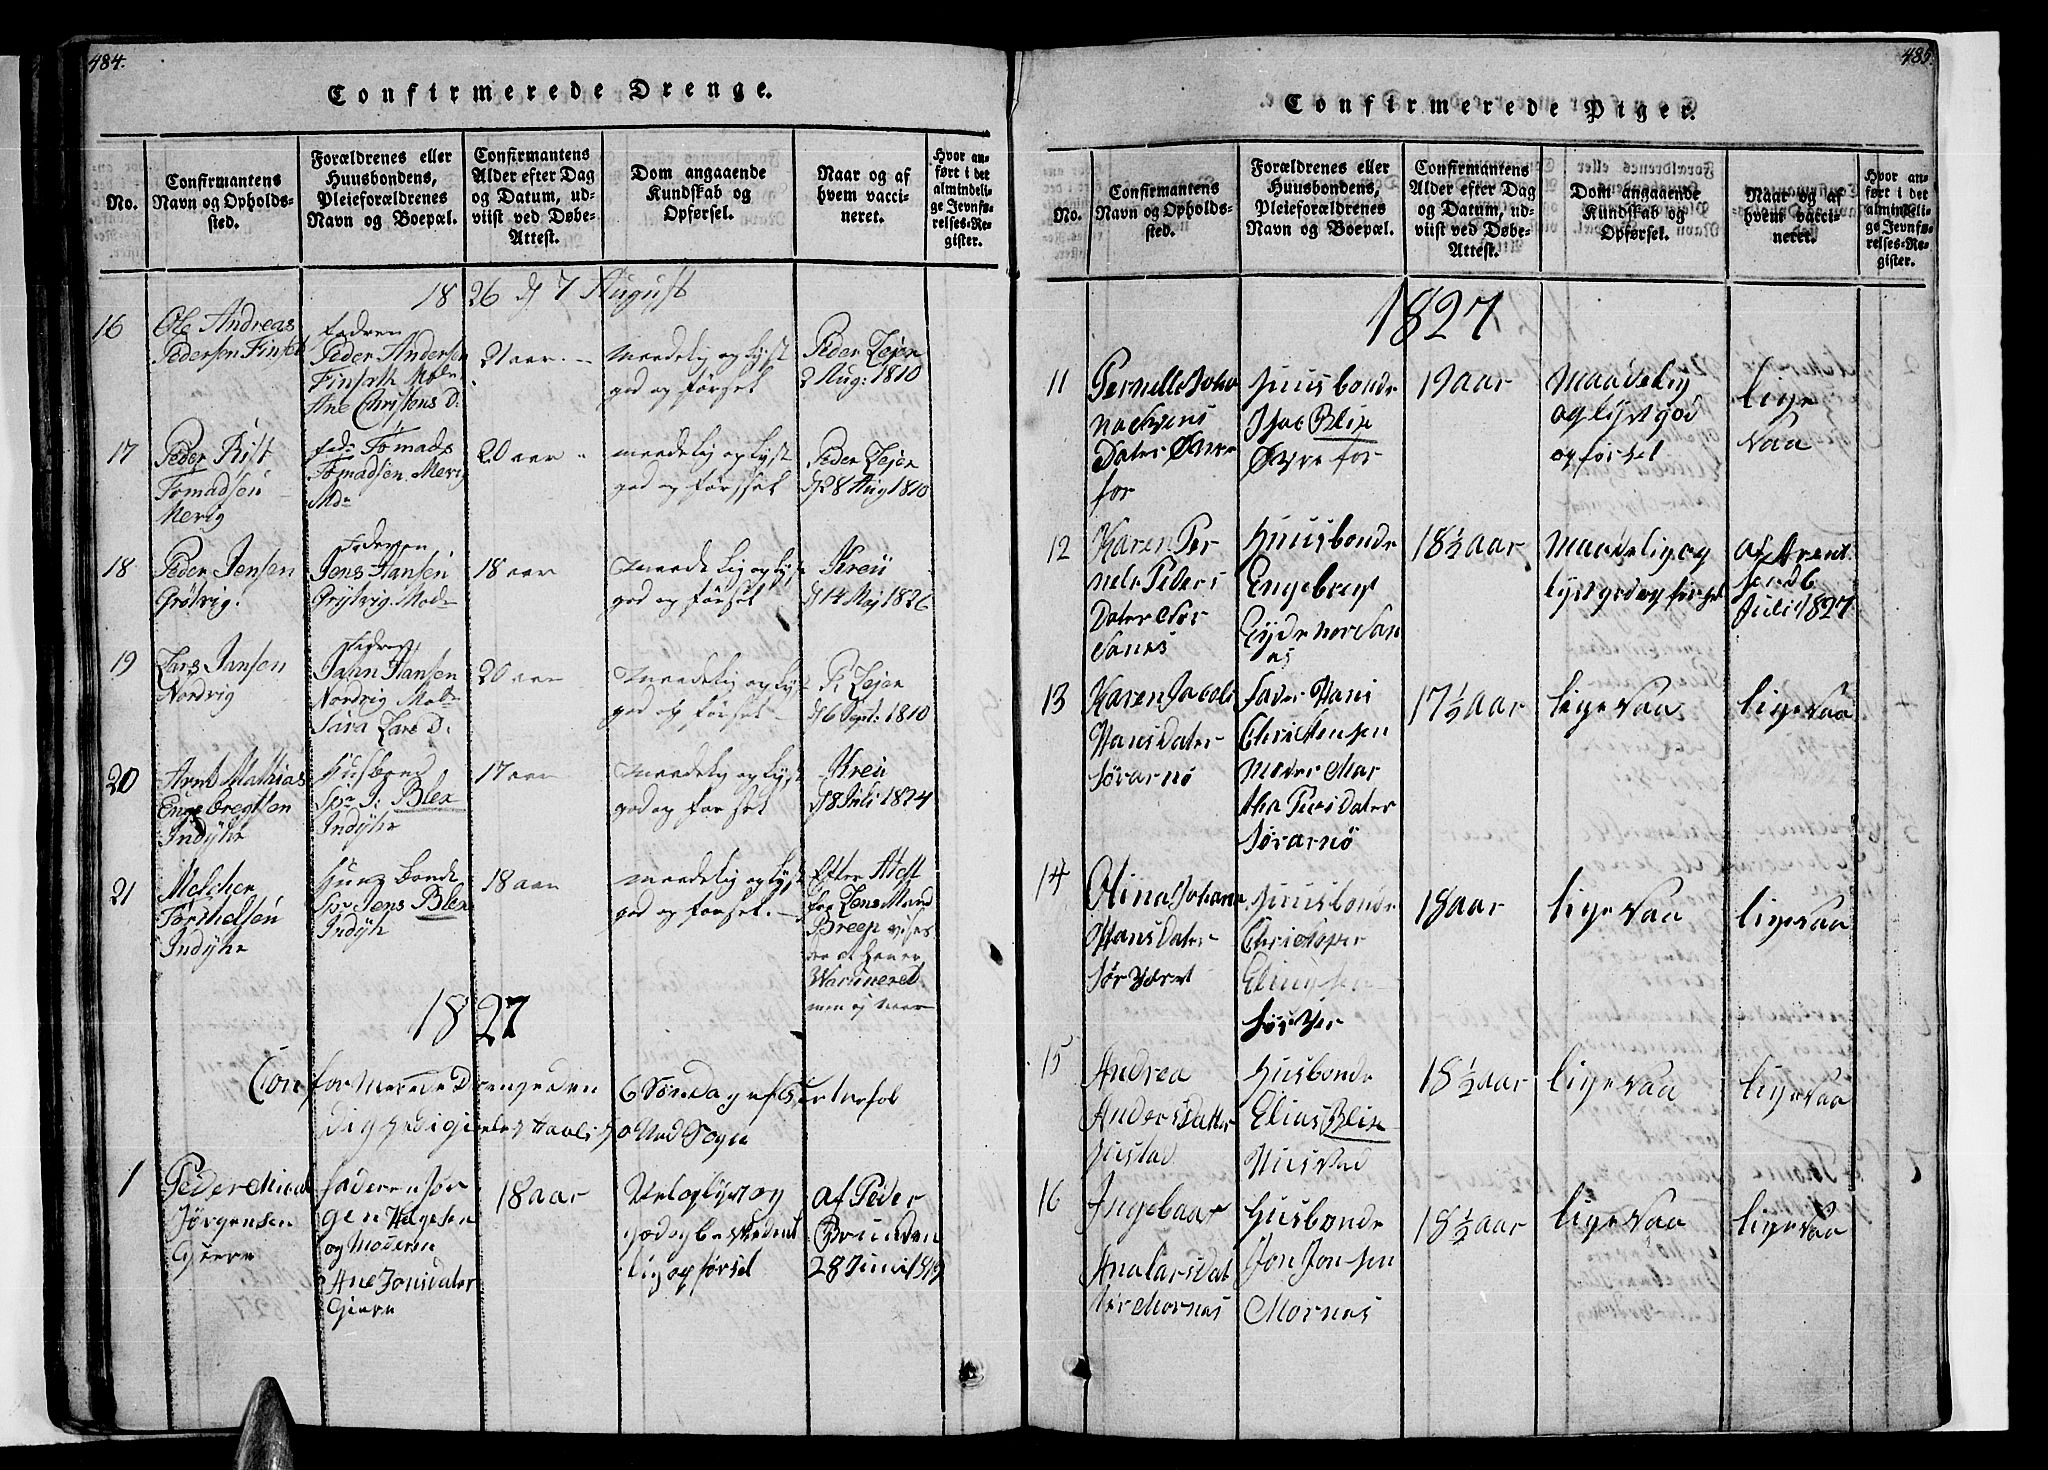 484.
Confirmerede Drenge.
No.
Confirmantens
Navn og Opholds-
sted.
Forældrenes eller
Huusbondens,
Pleieforældrenes
Navn og Boepæl.
Confirmantens
Alder efter Dag
og Datum, ud-
viist ved Døbe-
Attest.
Dom angaaende
Kundskab og
Opførsel.
Naar og af
hvem vacci-
neret.
Hvor an-
ført i det
almindeli-
ge Jevnfø-
relses-Re-
gister.
1826 d 7 August
16
Ole Andreas
Pedersen Finset
Fadren
Peder Andersen
Finsath Mod
Ane Christens D.
21 aar
maadelig og lyst
god og førset
Peder Zejer
2 Aug: 1810
17
Peder Rist
Tomadsen
Mevig
fad: Tomads
Tomadsen Mevig
Mod
20 aar
maadelig og lyst
god og førsset
Peder Zejer
d 28 Aug 1810
18
Peder Jensen
Grøtvig.
Faderen
Jens Hansen
Grøtvig Mod
18 aar
maadelig og lyst
god og førset
Kreü
d 14 Maj 1826
19
Lars Jansen
Nordvig
Fadren
Jahn Hansen
Nordvig Mod
Sara Lars D.
20 aar
maadelig og lyst
god og førset
P. Zejer
d 6 Sept: 1810
20
Arnt Mathias
Engebregtsen
Indyhr
Husbond
Sr J: Blex
Indyhr
17 aar
maadelig og lyst
god og forset
Kreü
d 8 Juli 1824
21
Melcher
Torchelsen
Indyhr
Huus bonde
Sr Jens Blex
Indyh
18 aar
maadelig og lyst
god og forset.
Efter Atest
fra Lens Mand
Breep vises
der at han er
Waxineret
men ej naar
1827
Conformerede Drenge den 6 Søndag efter trefol
dighedigi Und Sogn
1
Peder Michal
Jørgensen
Gierø
faderen Jør
gen Helgesen
og Moderen
Ane Jonsdater
Gierø
18 aar
Vel oplyst og
god og beskedent
lig opførsel
af Peder
Brunden
28 Juni 1819
485.
Confirmerede Piger.
No.
Confirmantens
Navn og Opholds-
sted.
Forældrenes eller
Huusbondens,
Pleieforældrenes
Navn og Boepæl.
Confirmantens
Alder efter Dag
og Datum, ud-
viist ved Døbe-
Attest.
Dom angaaende
Kundskab og
Opførsel.
Naar og af
hvem vacci-
neret.
Hvor an-
ført i det
almindeli-
ge Jevnfø-
relses-Re-
gister.
1827
11
Pernelle Joha
na Svens
Dater
for
Huusbonde
Isac Blix
for
19 aar
Maadelig
og lyst god
opførsel
lige
saa
12
Karen Per
nele Peders
Dater Nor
Sanes
Huusbonde
Engebregt
Eyde Nor San
es
18½ aar
Maadelig og
lyst god og førsel
af Arent
sen d 6
Juli 1827
13
Karen Jacobe
Hansdater
Sørarnø
Fader Hans
Christensen
Moder Mar
tha Persdater
Sørarnø
17½ aar
lige saa
lige saa
14
Olina Johana
Hansdater
Sør Været
Huusbonde
Christopher
Elingsen
Sør Vær
18 aar
lige saa
lige saa
15
Andrea
Andersdatter
Hustad
Husbonde
Elias Blix
Hustad
18½ aar
lige saa
lige saa
16
Ingebaar
Ana Larsdat
ter Mornes
Husbonde
Jon Jonsen
Mornes
18½ aar
lige saa
lige saa